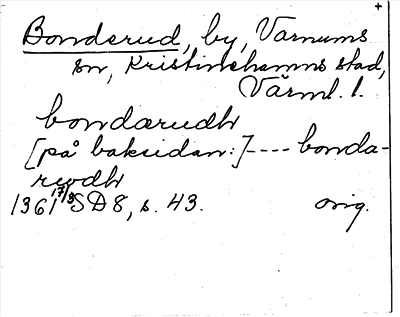 +
Bonderud, by, Varnums
sn, Kristinehamns stad,
Värml. l.
bondarudh
[på baksidan:]---- bonda-
rwdh
1361 17/3 SD8, s. 43. orig.